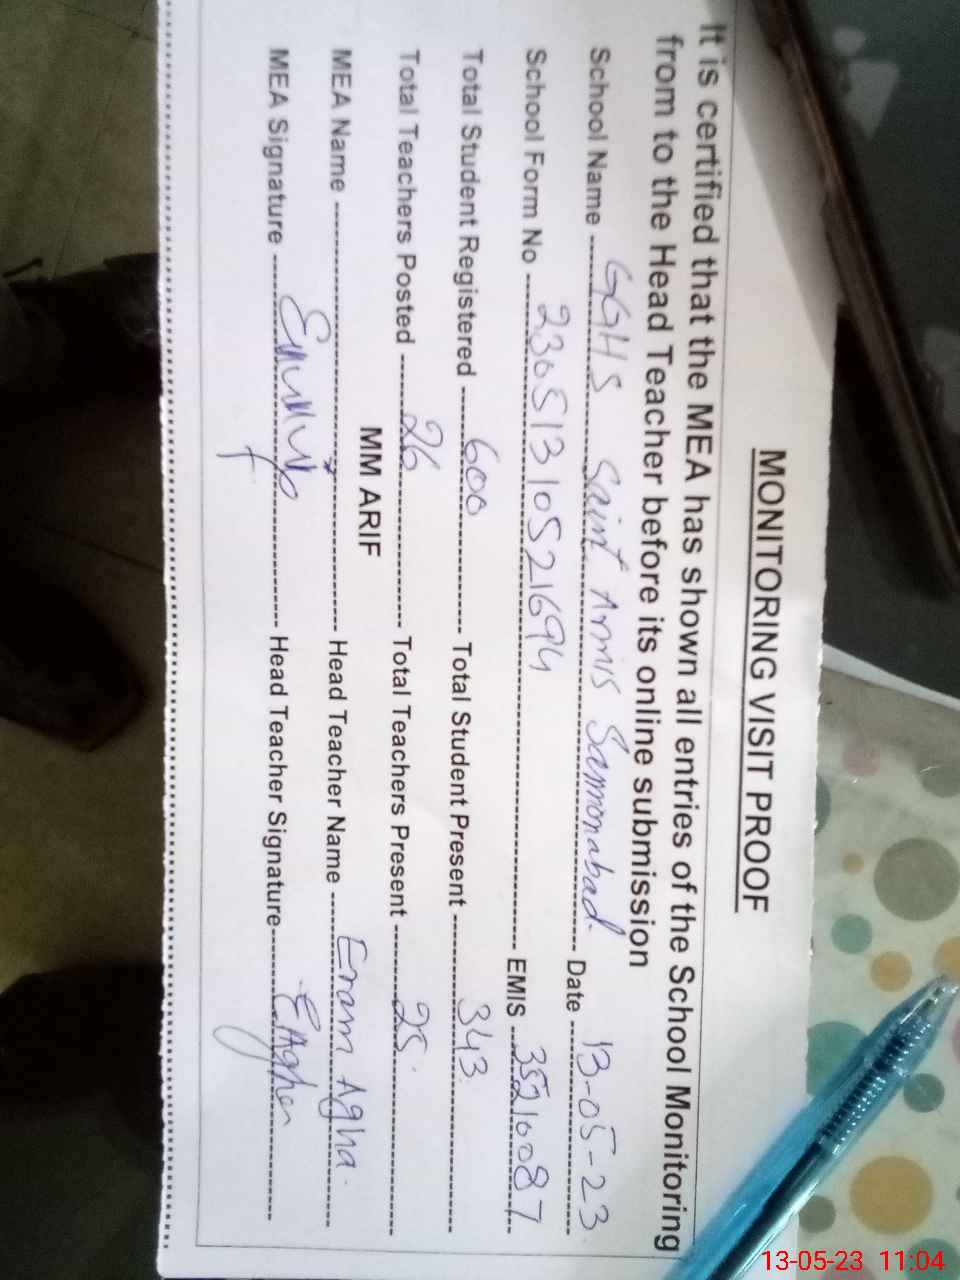 MONITORING VISIT PROOF
It is certified that the MEA has shown all entries of the School Monitoring
from to the Head Teacher before its online submission
School Name GGHS Saint Annis Sammonabad Date 13-05-23
School Form No 2305131052 1694 EMIS 35210087
Total Student Registered 600 Total Student Present 343
Total Teachers Posted 26 Total Teachers Present 25
MM ARIF
MEA Name Head Teacher Name Eram Agha
MEA Signature Head Teacher Signature EAgha
13-05-23 11:04